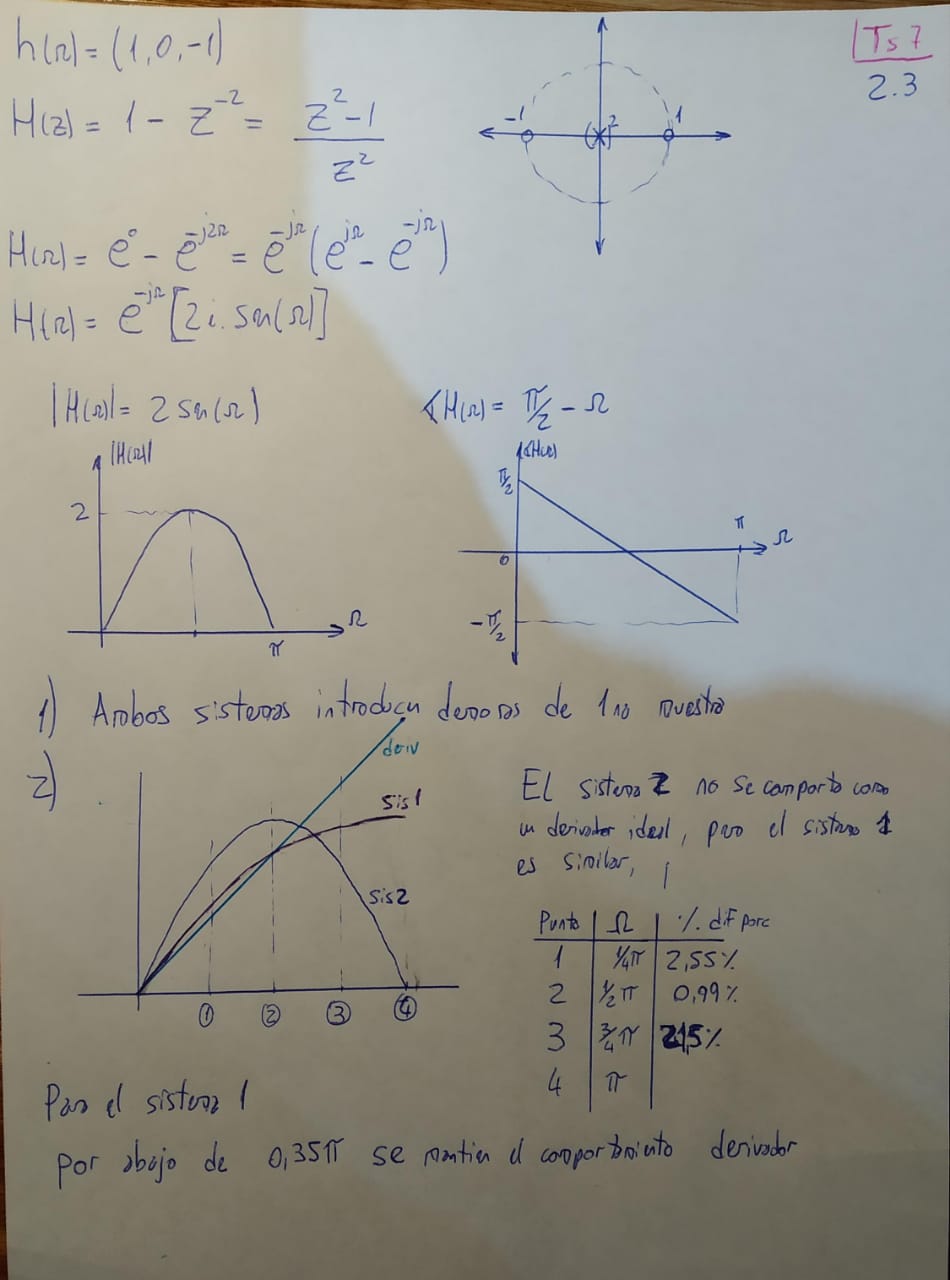 h(Ω) = (1, 0, -1)
Ts 7
2.3
H(z) = 1 - z^-2 = (z^2 - 1) / z^2
-1 (×)^2 1
H(Ω) = e^0 - e^-j2Ω = e^-jΩ (e^jΩ - e^-jΩ)
H(Ω) = e^-jΩ [2i. sen(Ω)]
|H(Ω)| = 2 sen(Ω)
∢H(Ω) = π/2 - Ω
|H(Ω)|
2
π
Ω
∢H(Ω)
π/2
0
π
Ω
-π/2
1) Ambos sistemas introducen demoras de 1na muestra
2)
deriv
sis1
sis2
① ② ③ ④
El sistema 2 no se comporta como
un derivador ideal, pero el sistema 1
es similar,
Punto | Ω | % dif porc
1 | 1/4π | 2,55%
2 | 1/2 π | 0,99%
3 | 3/4 π | 21,5%
4 | π
Para el sistema 1
por abajo de 0,35π se mantien el comportamiento derivador